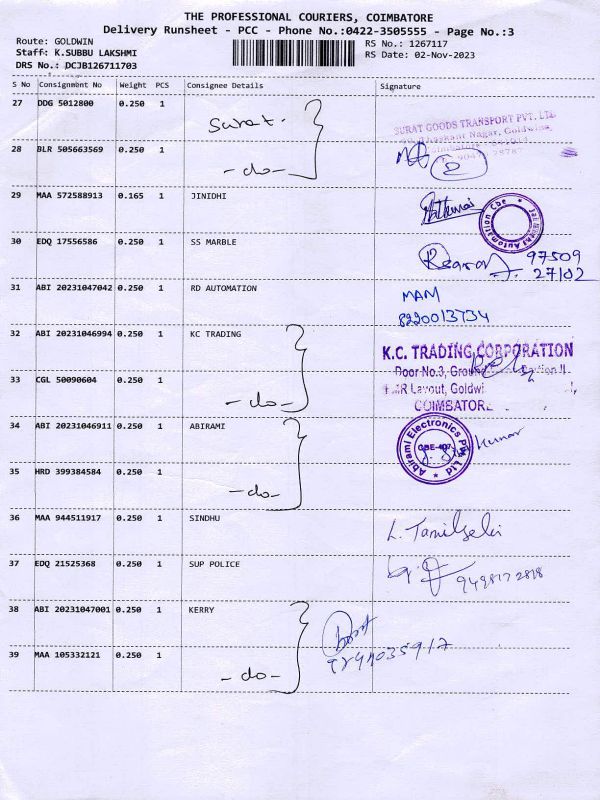 THE PROFESSIONAL COURIERS, COIMBATORE
Delivery Runsheet - PCC - Phone No.:0422-3505555 - Page No.:3
Route: GOLDWIN
RS No.: 1267117
Staff: K.SUBBU LAKSHMI
RS Date: 02-Nov-2023
DRS No.: DCJB126711703
S No Consignment No Weight PCS Consignee Details Signature
27 DDG 5012800 0.250 1 Surat.
SURAT GOODS TRANSPORT PVT. LTD
Nagar, Goldwins,
28 BLR 505663569 0.250 1 -do-
29 MAA 572588913 0.165 1 JINIDHI
Automation Cbe
30 EDQ 17556586 0.250 1 SS MARBLE
97509
27102
31 ABI 20231047042 0.250 1 RD AUTOMATION MAM
8220013734
32 ABI 20231046994 0.250 1 KC TRADING
K.C. TRADING CORPORATION
Door No.3,
33 CGL 50090604 0.250 1 -do-
Layout, Goldwi
COIMBATORE
34 ABI 20231046911 0.250 1 ABIRAMI
Abirami Electronics Pvt. Ltd
CBE-407
35 HRD 399384584 0.250 1 -do-
36 MAA 944511917 0.250 1 SINDHU L. Tamilselvi
37 EDQ 21525368 0.250 1 SUP POLICE
38 ABI 20231047001 0.250 1 KERRY
39 MAA 105332121 0.250 1 -do-